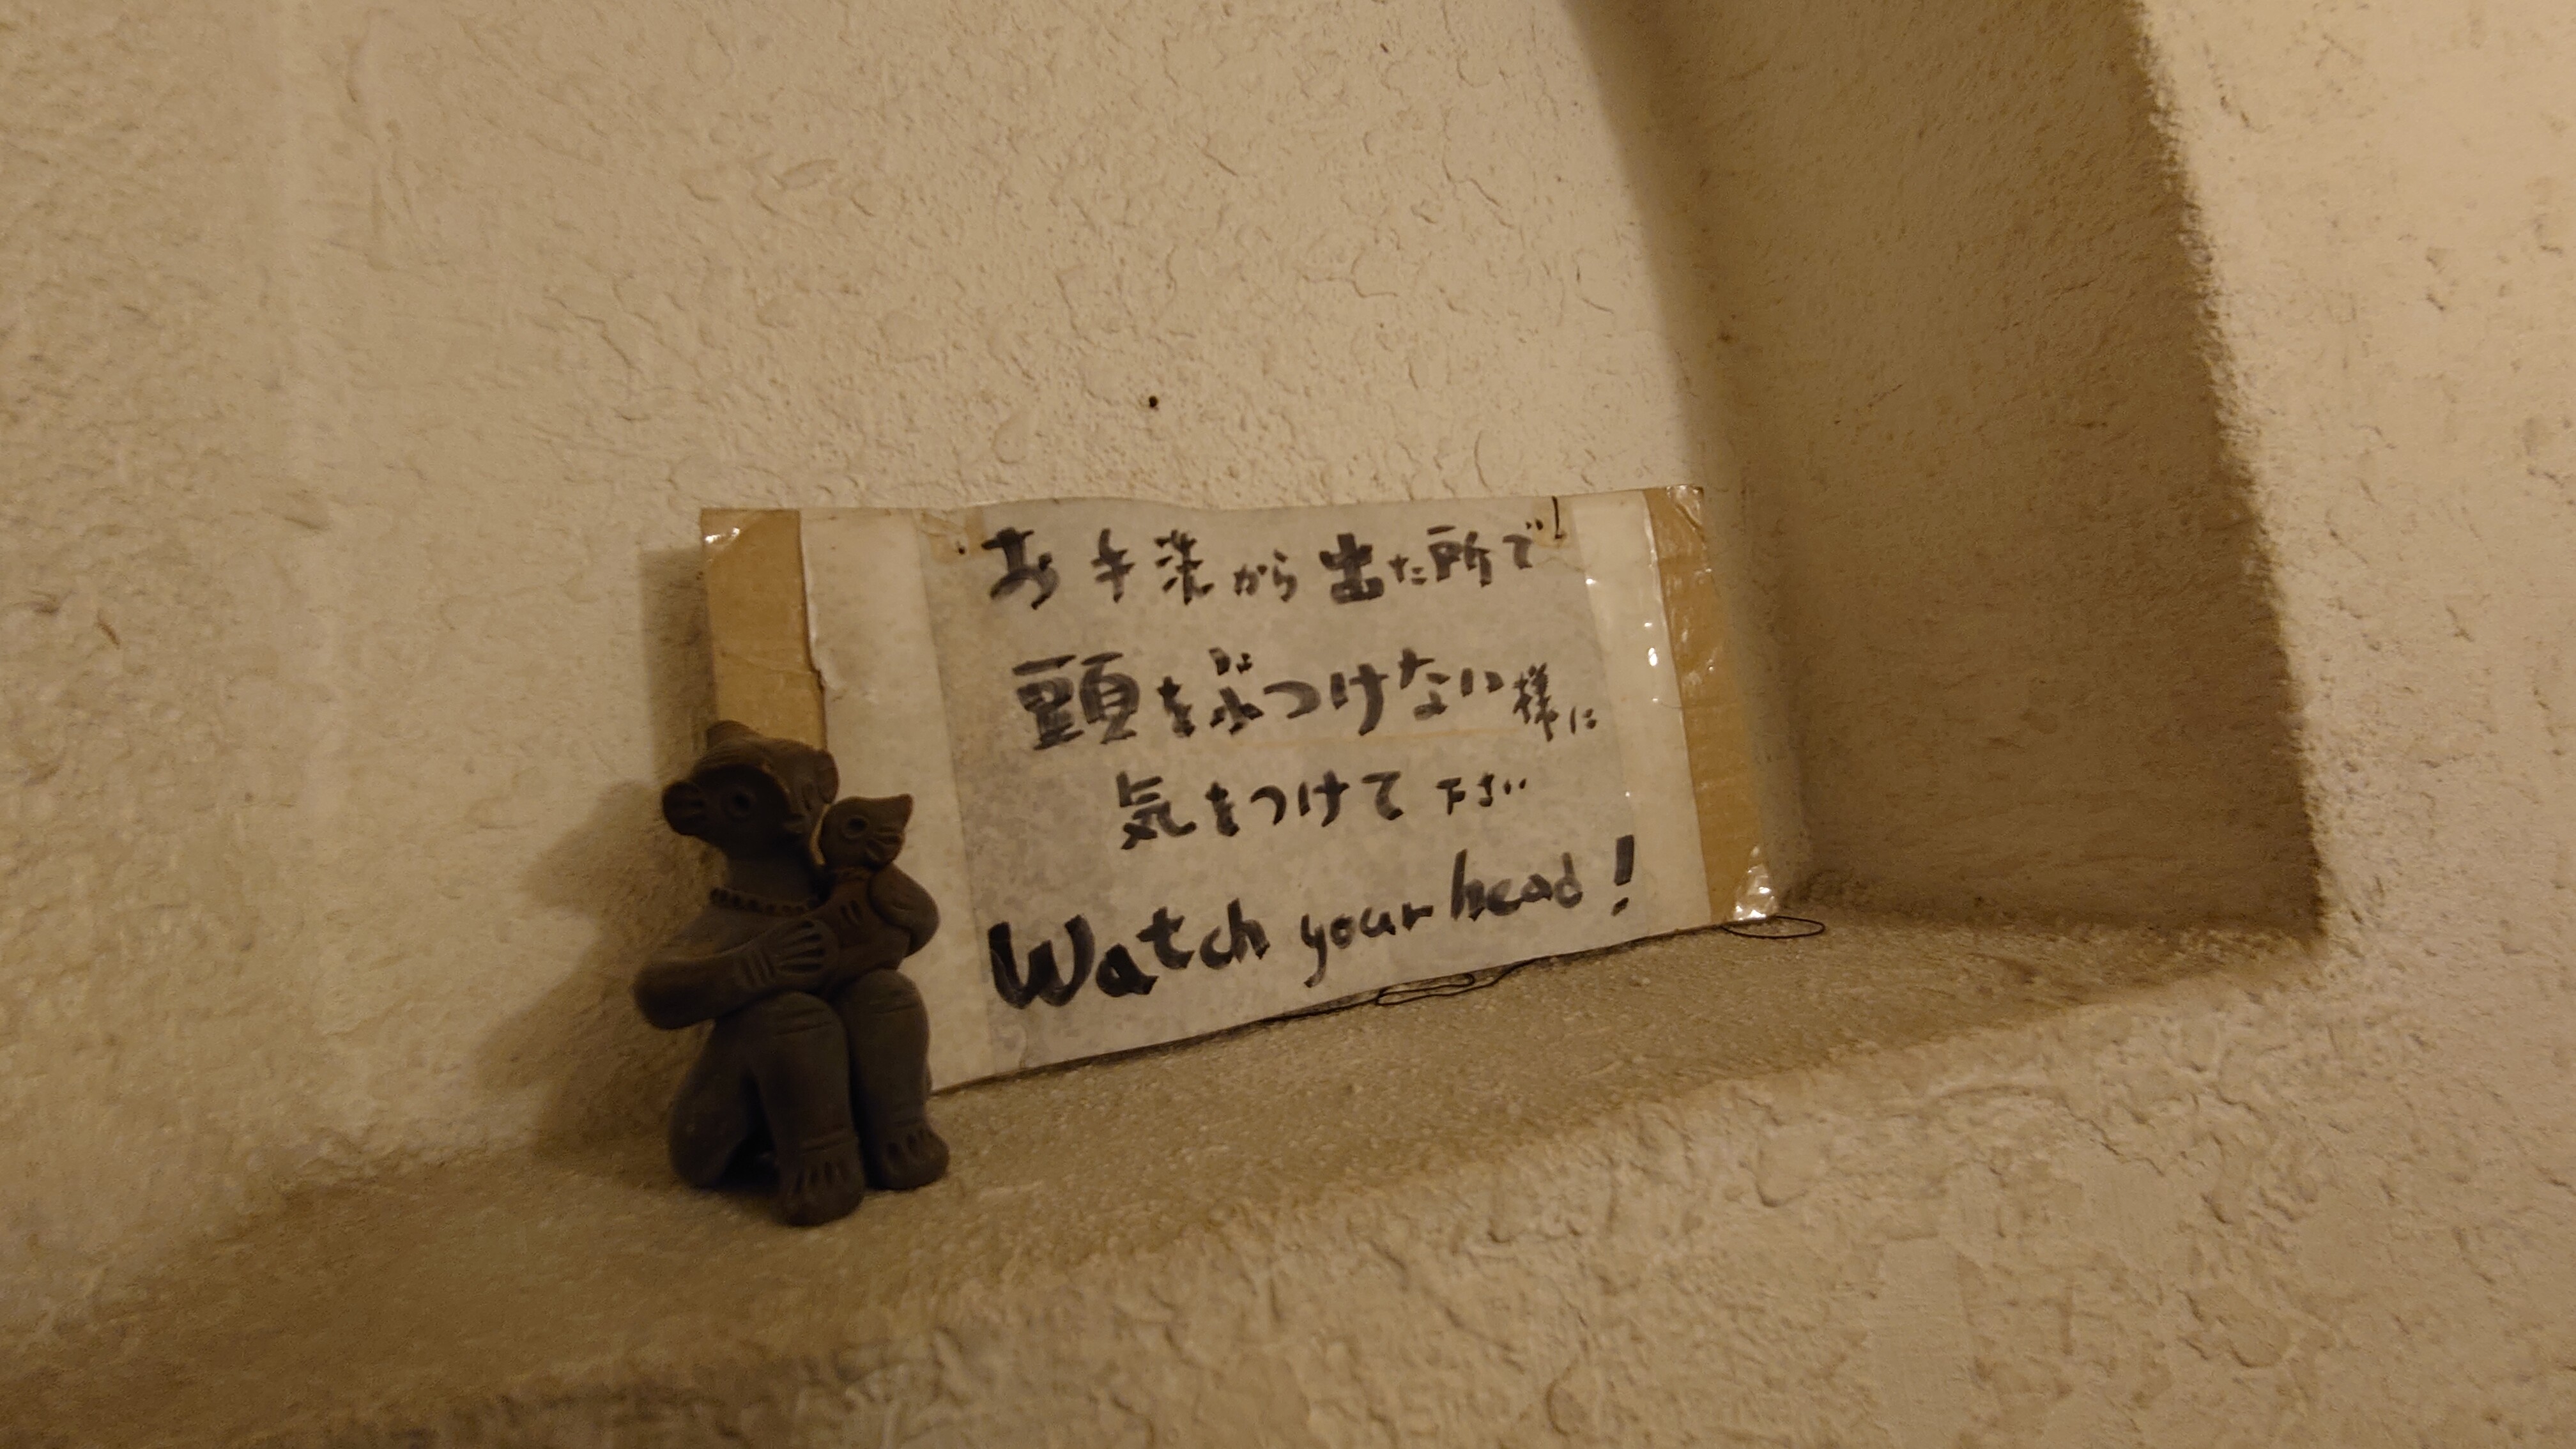 お手洗から出た所で
頭をぶつけない様に
気をつけて下さい
Watch your head!